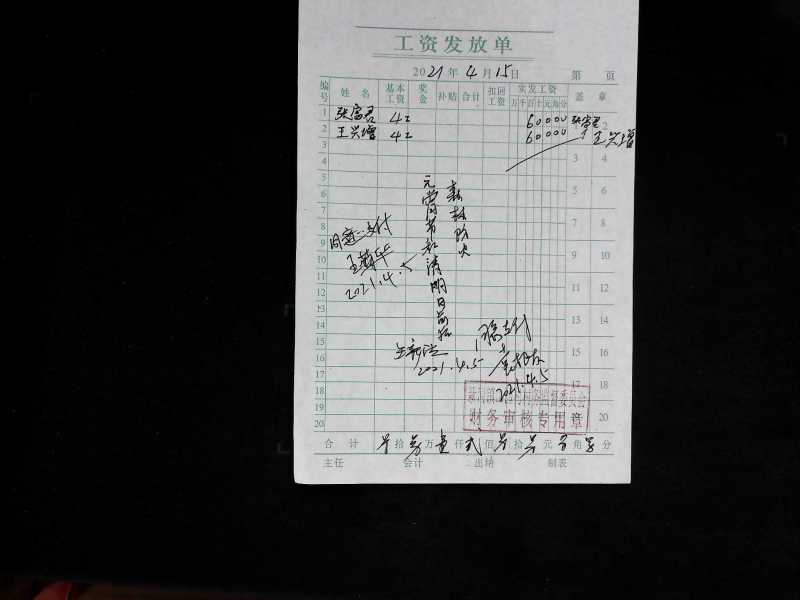 工资发放单
2021年4月15日 第 页
编号 姓名 基本工资 奖金 补贴 合计 扣回工资 实发工资 盖章
万 千 百 十 元 角 分
1 张富君 4工 60000 张富君 1 2
2 王兴增 4工 60000 王兴增
3 3 4
4
5 5 6
6
7 7 8
8
9 9 10
10
11 11 12
12
13 13 14
14
15 15 16
16
17 17 18
18
19 20
20
森林防火
元宵节和清明日前后
同意支付
2021.4.5
2021.4.5
2021.4.5
财务审核专用章
合计 拾 万壹仟贰佰 拾 元 角 分
主任 会计 出纳 制表